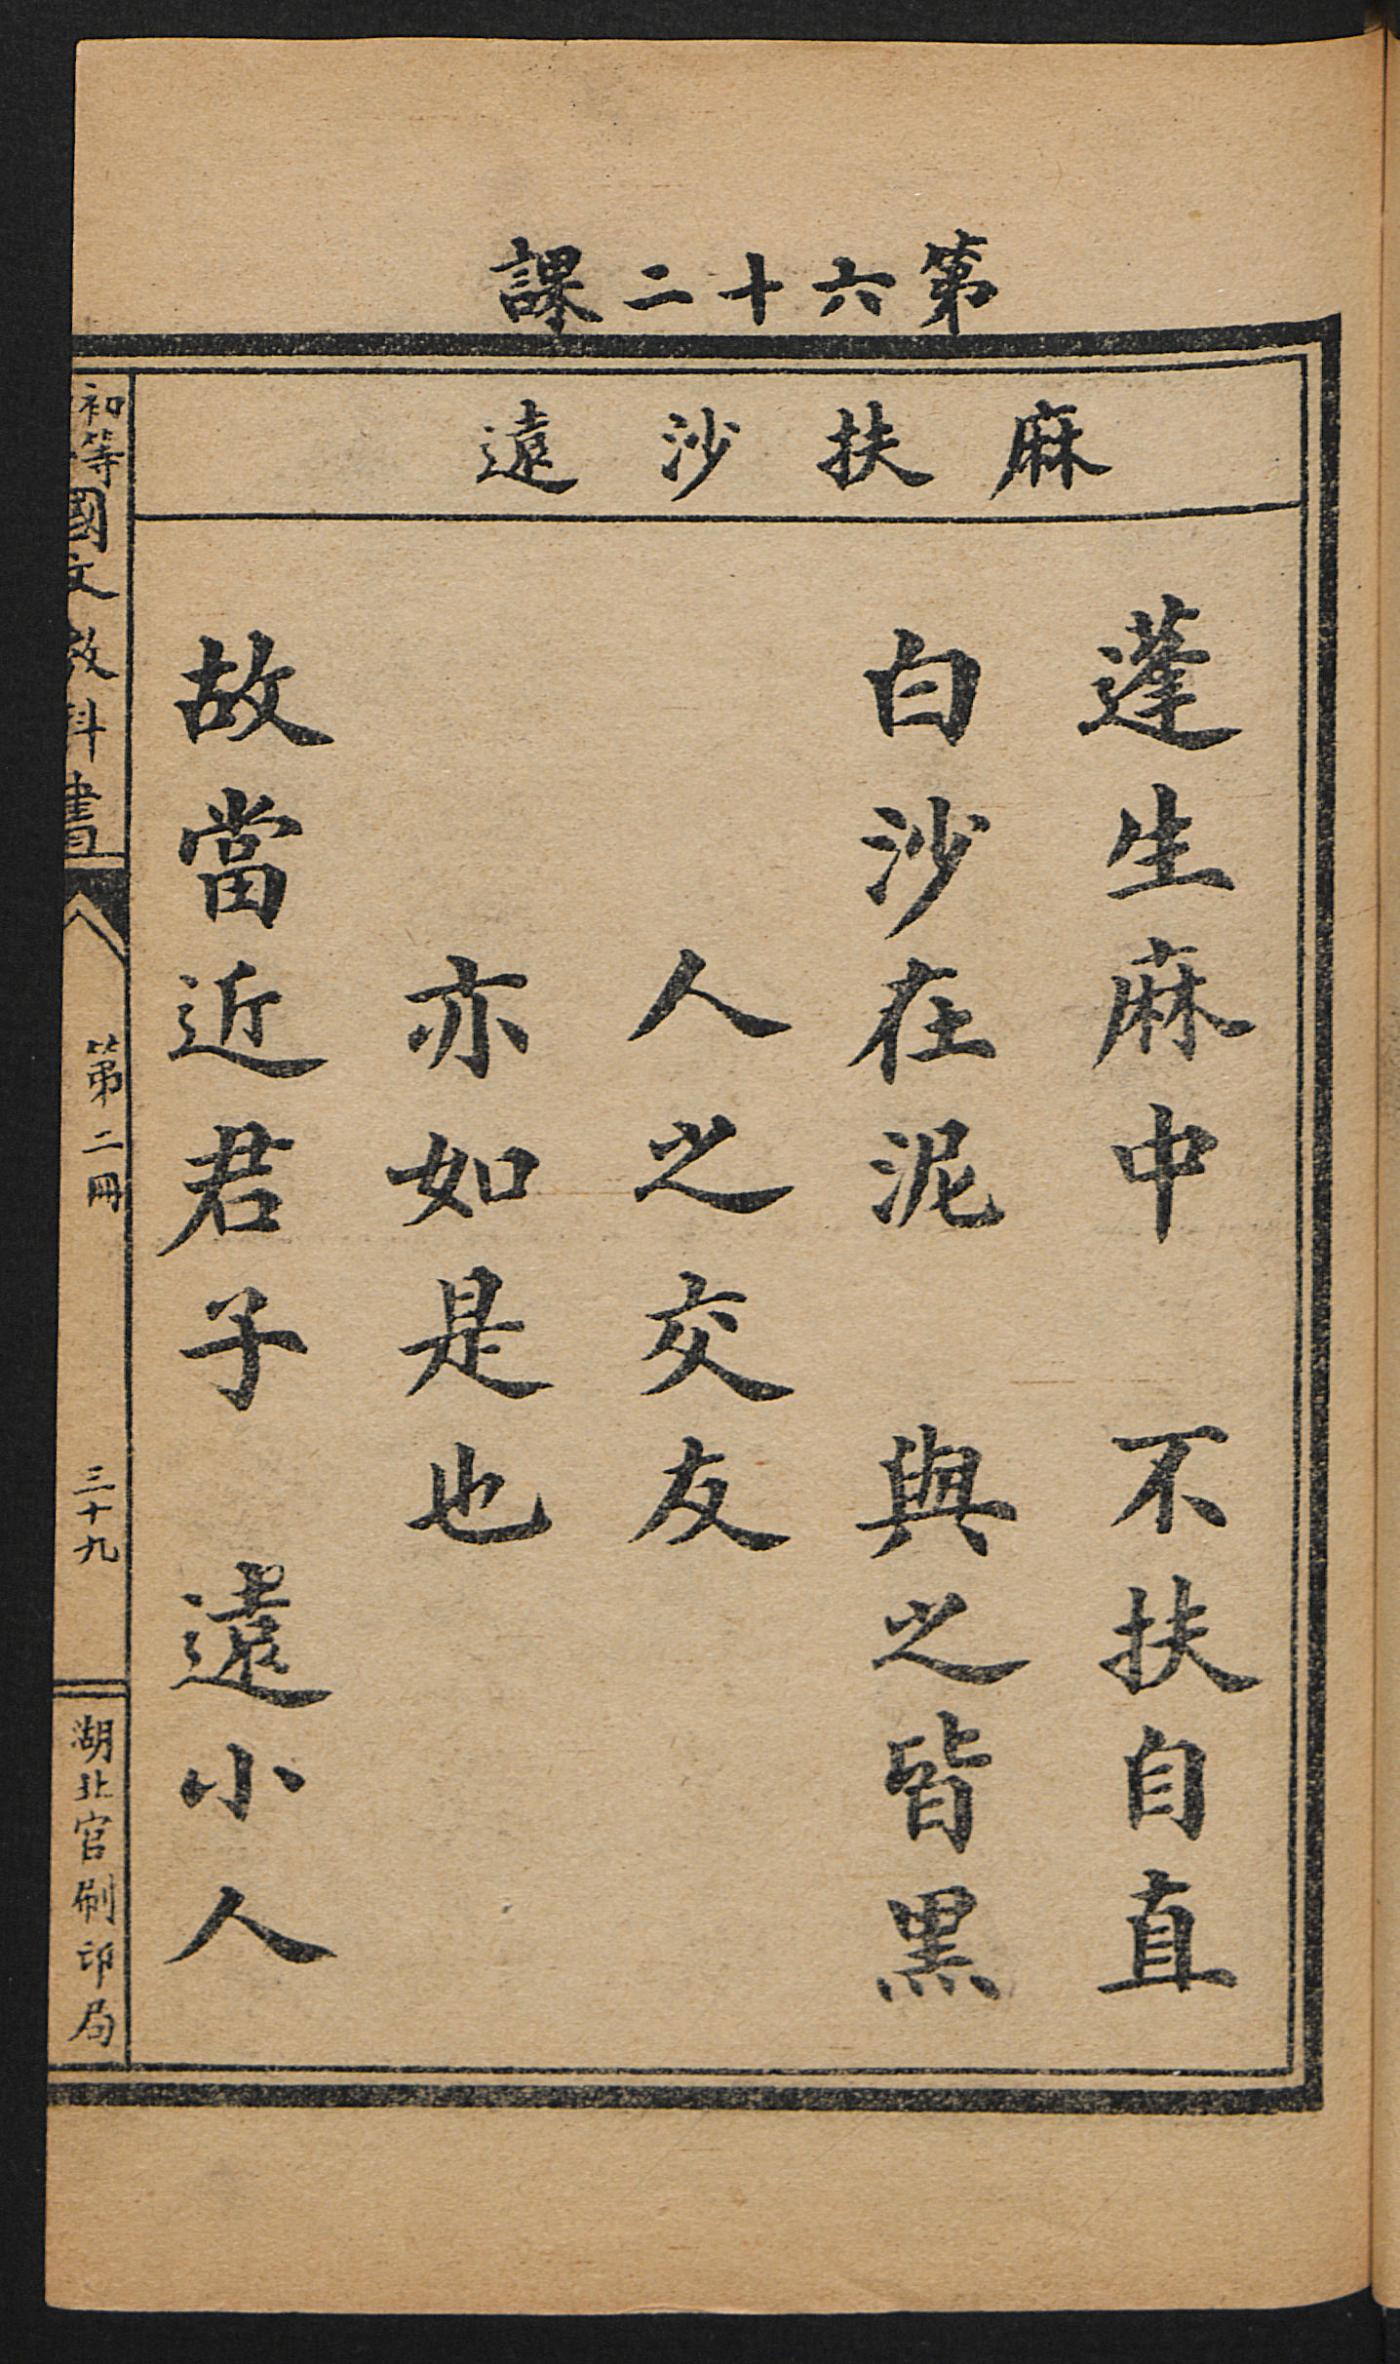 第六十二課
麻扶沙遠
蓬生麻中　不扶自直
白沙在泥　與之皆黑
人之交友
亦如是也
故當近君子　遠小人
初等國文教科書
第二冊
三十九
湖北官刷印局